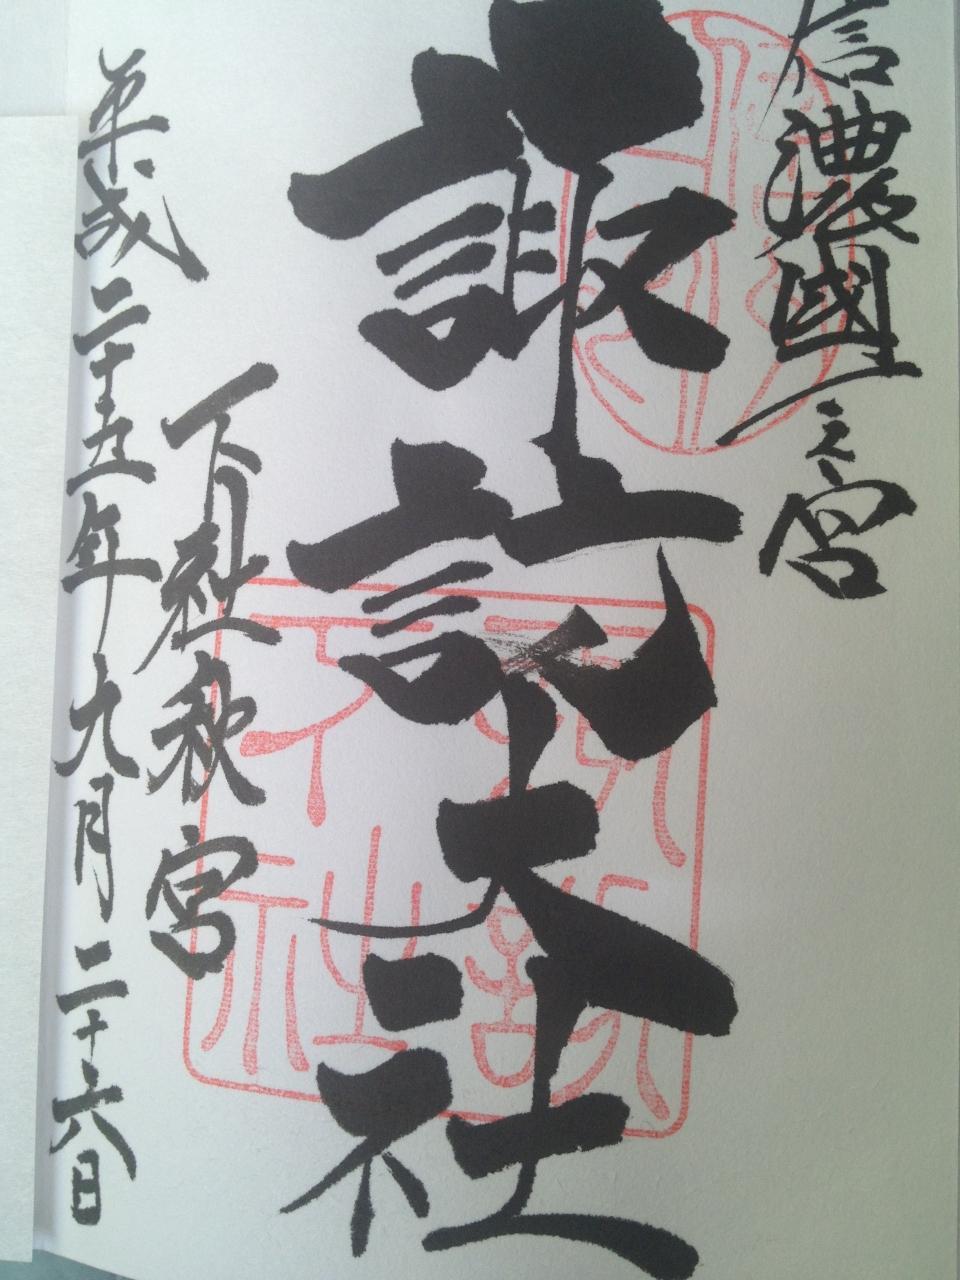 信濃國一之宮
諏訪大社
下社秋宮
平成二十五年九月二十六日